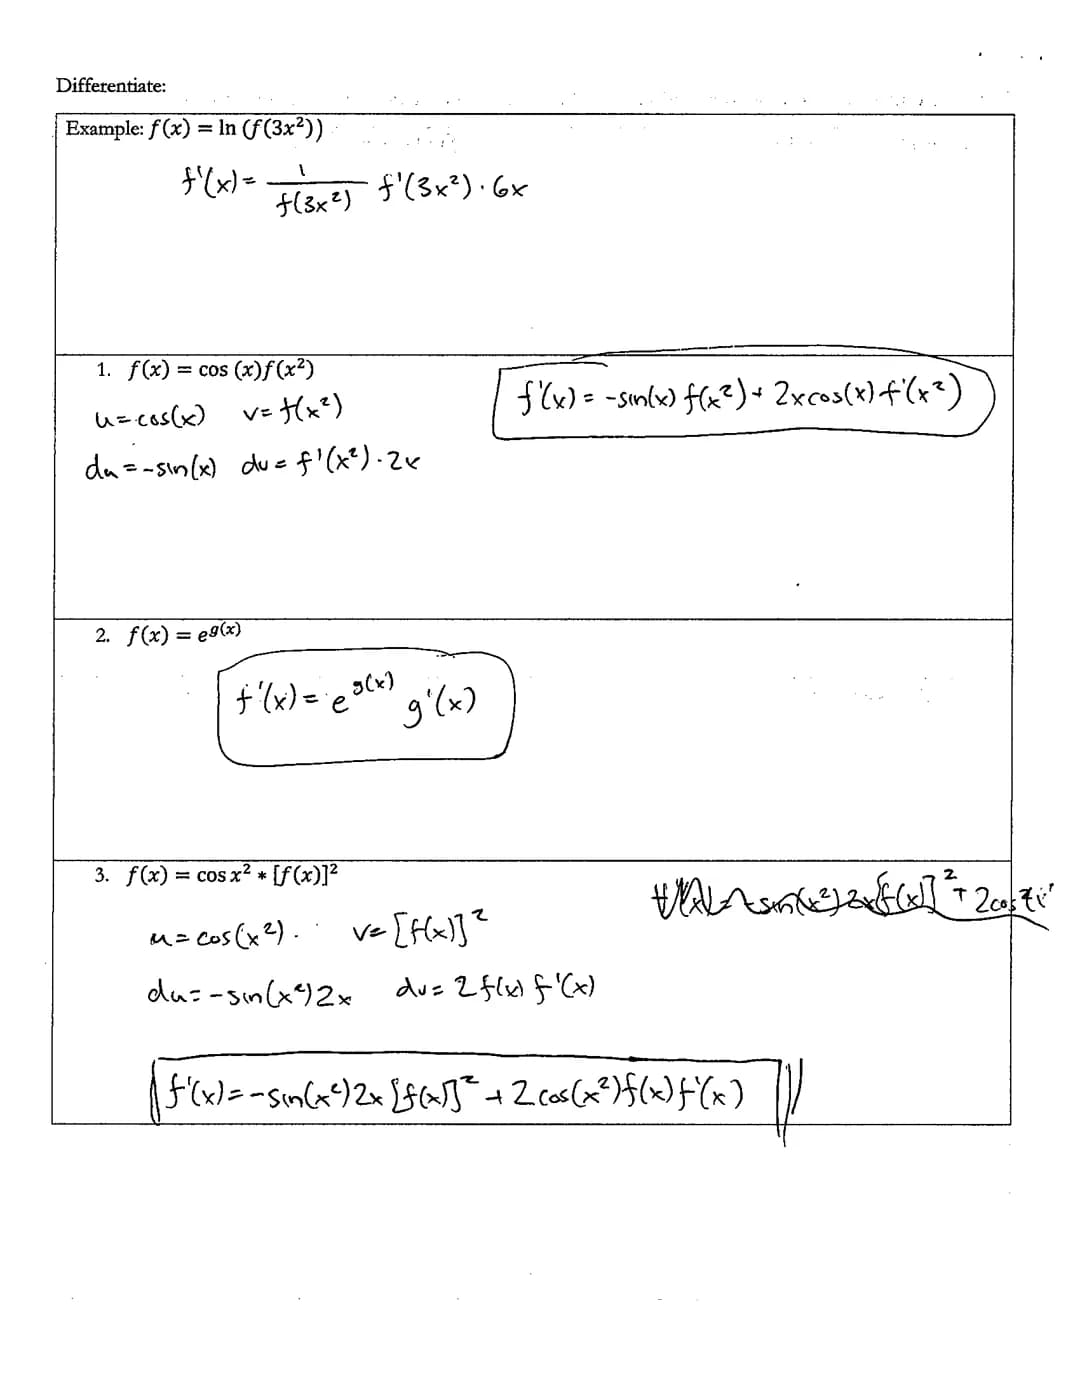 Differentiate:
Example: f(x) = ln (f(3x²))
f'(x) = 1/f(3x²) f'(3x²) · 6x
1. f(x) = cos (x)f(x²)
f'(x) = -sin(x) f(x²) + 2xcos(x) f'(x²)
u = cos(x) v = f(x²)
du = -sin(x) dv = f'(x²) · 2x
2. f(x) = e^g(x)
f'(x) = e^g(x) g'(x)
3. f(x) = cos x² * [f(x)]²
sin(x²) 2x[f(x)]² + 2cos
u = cos(x²) v = [f(x)]²
du = -sin(x²)2x dv = 2f(x) f'(x)
f'(x) = -sin(x²)2x [f(x)]² + 2cos(x²)f(x)f'(x)